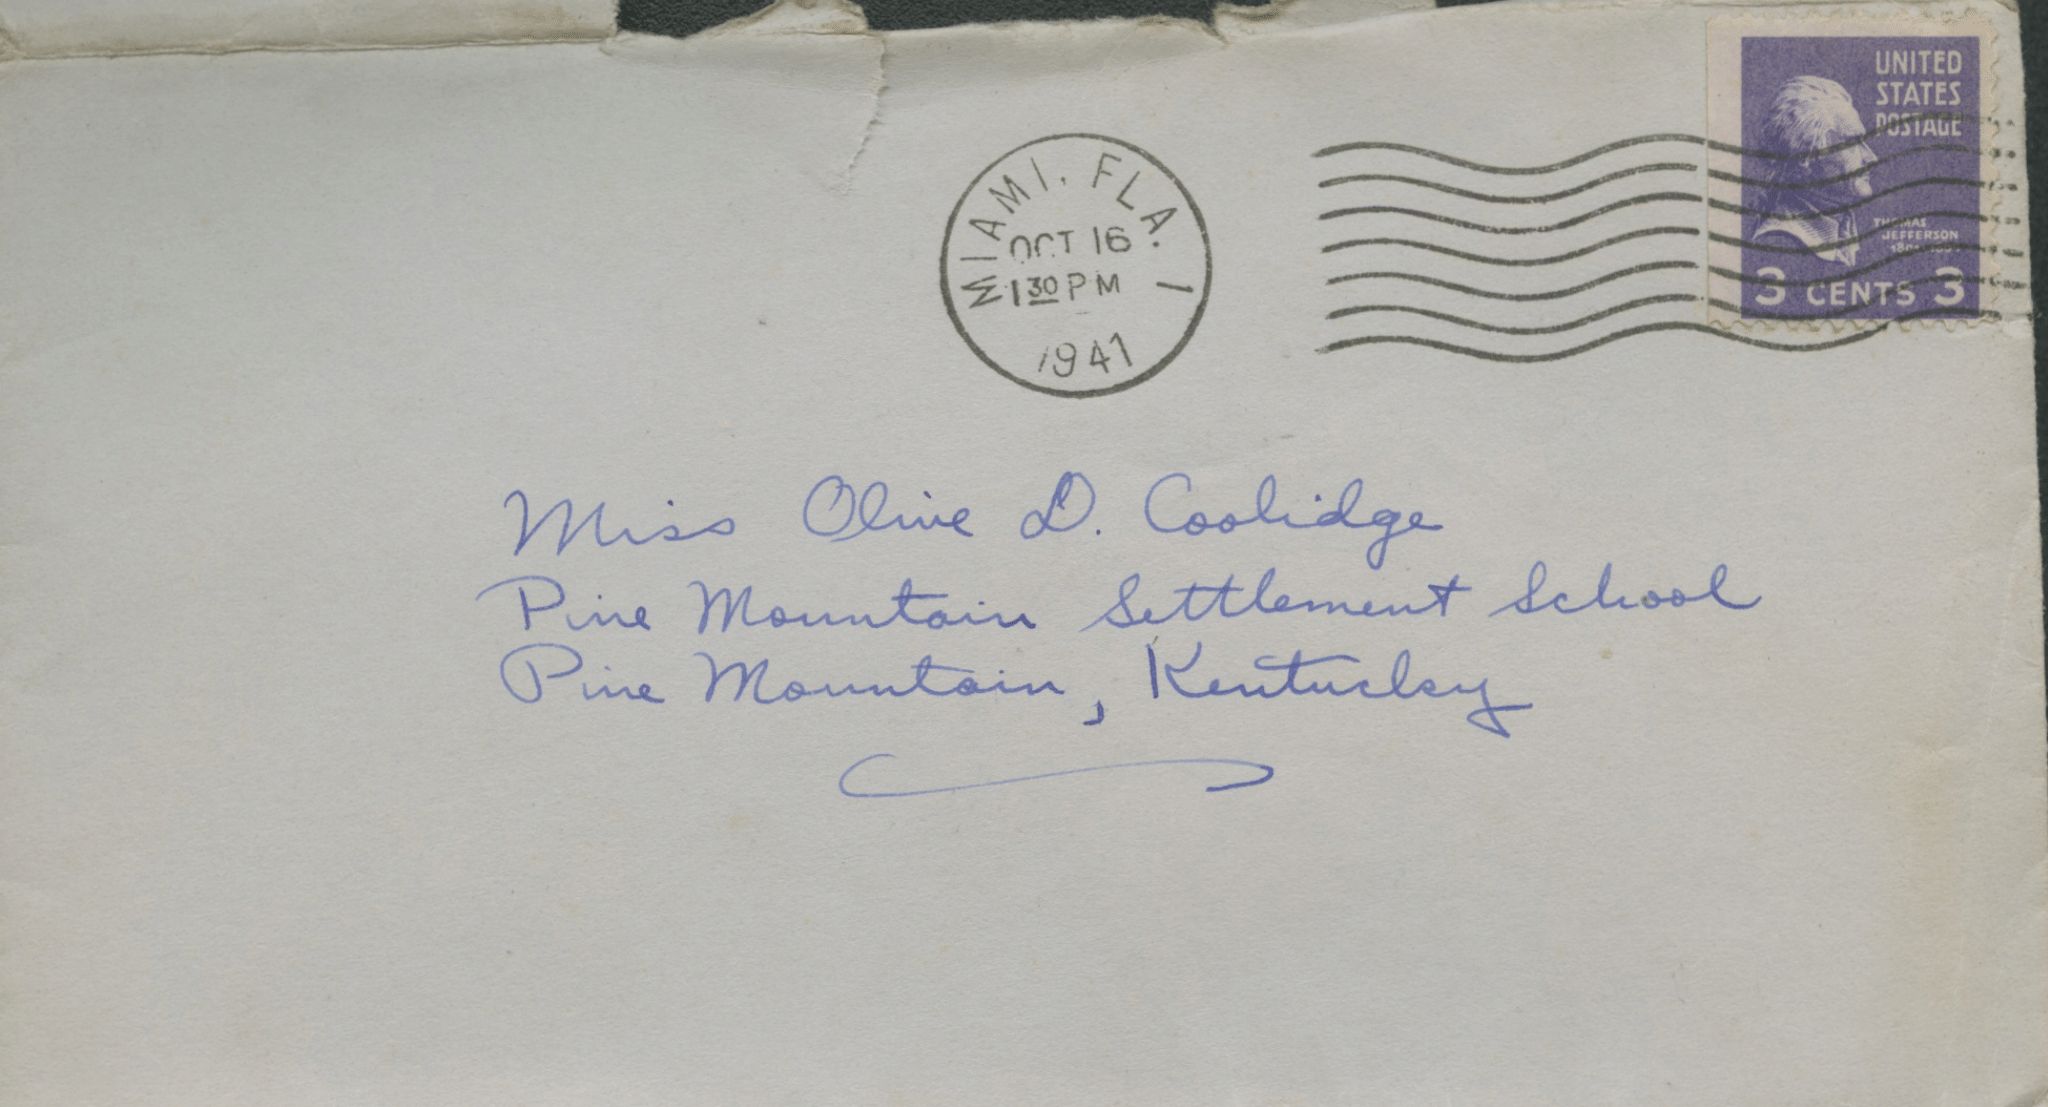 UNITED
STATES
POSTAGE
THOMAS
JEFFERSON
3 CENTS 3
MIAMI, FLA. 1
OCT 16
1 30 PM
1941
Miss Olive D. Coolidge
Pine Mountain Settlement School
Pine Mountain, Kentucky